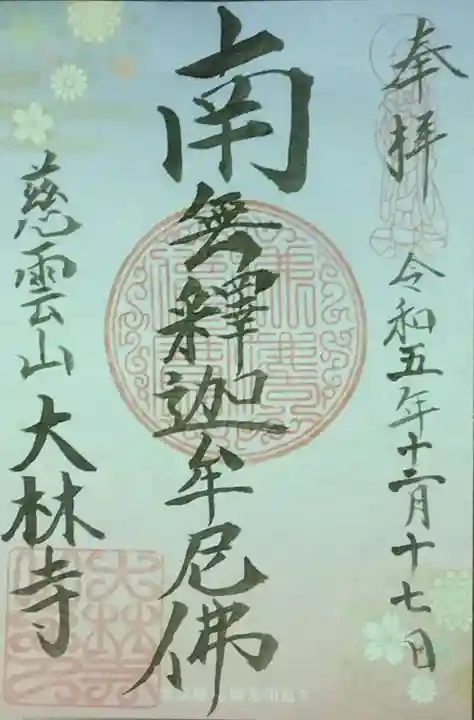 奉拝
令和五年十二月十七日
南無釋迦牟尼佛
慈雲山大林寺
大林寺